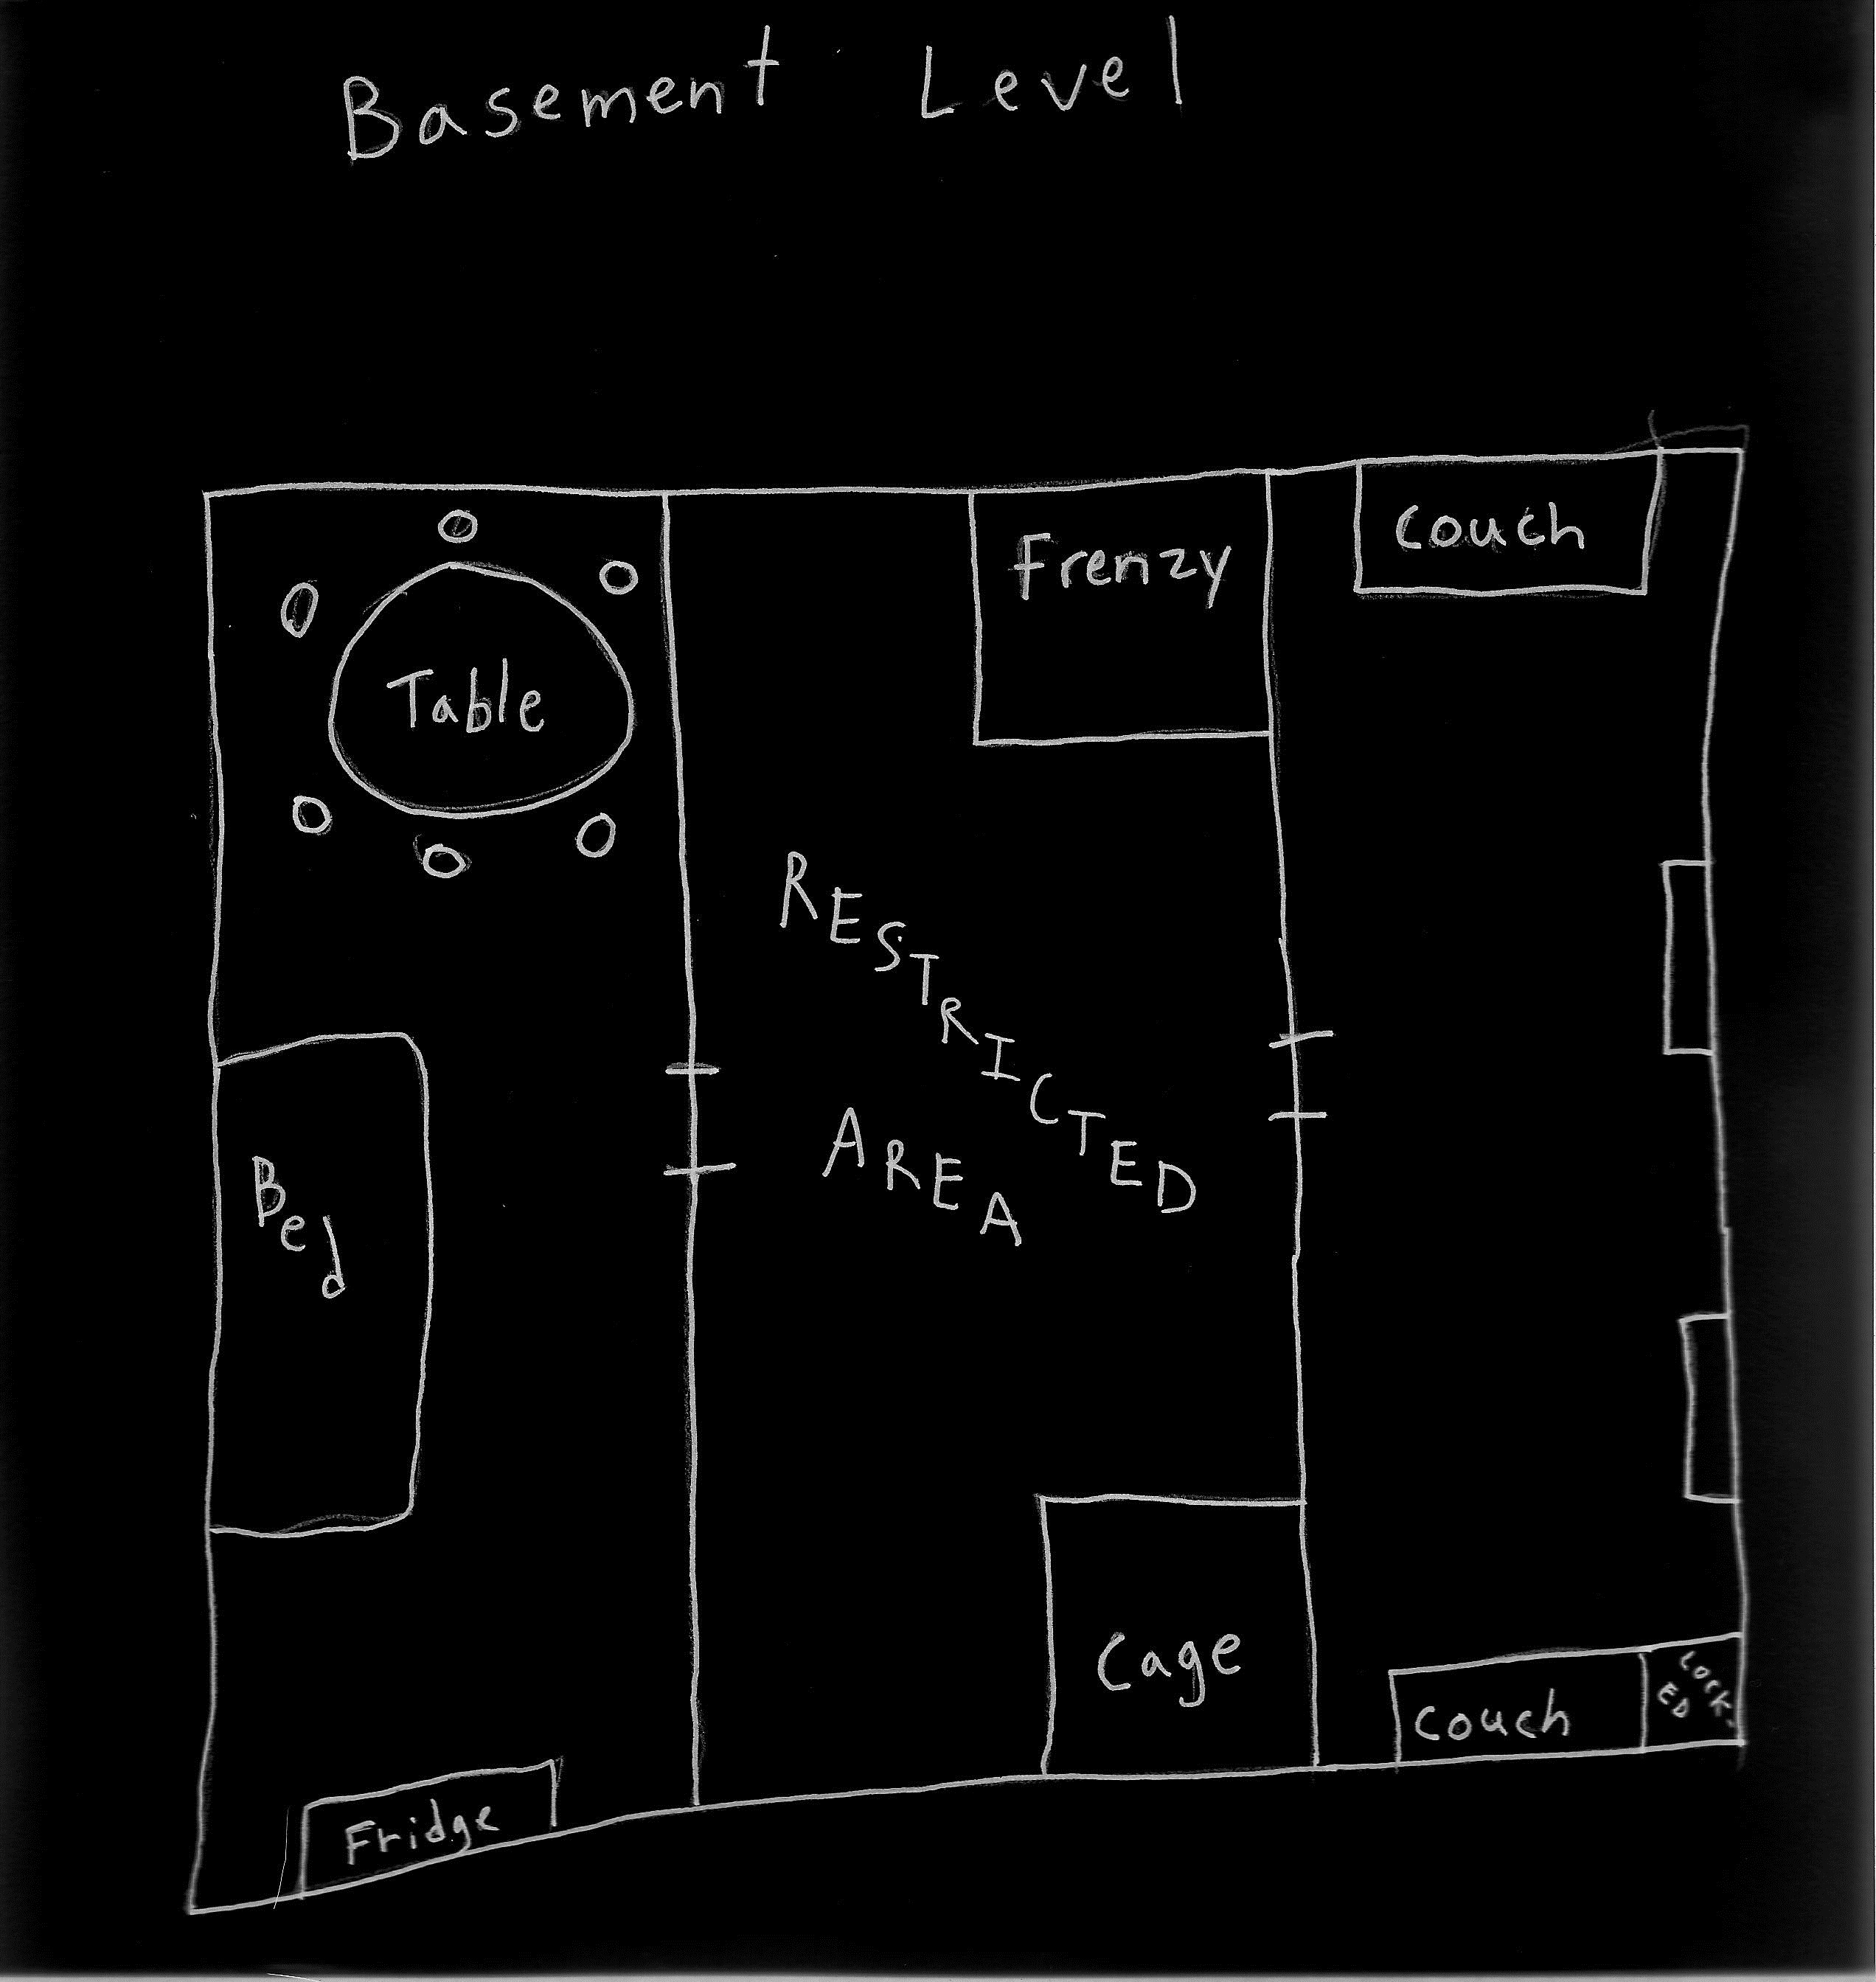 Basement Level
Frenzy
Couch
Table
RESTRICTED
AREA
Bed
Cage
Couch
LOCK-
ED
Fridge